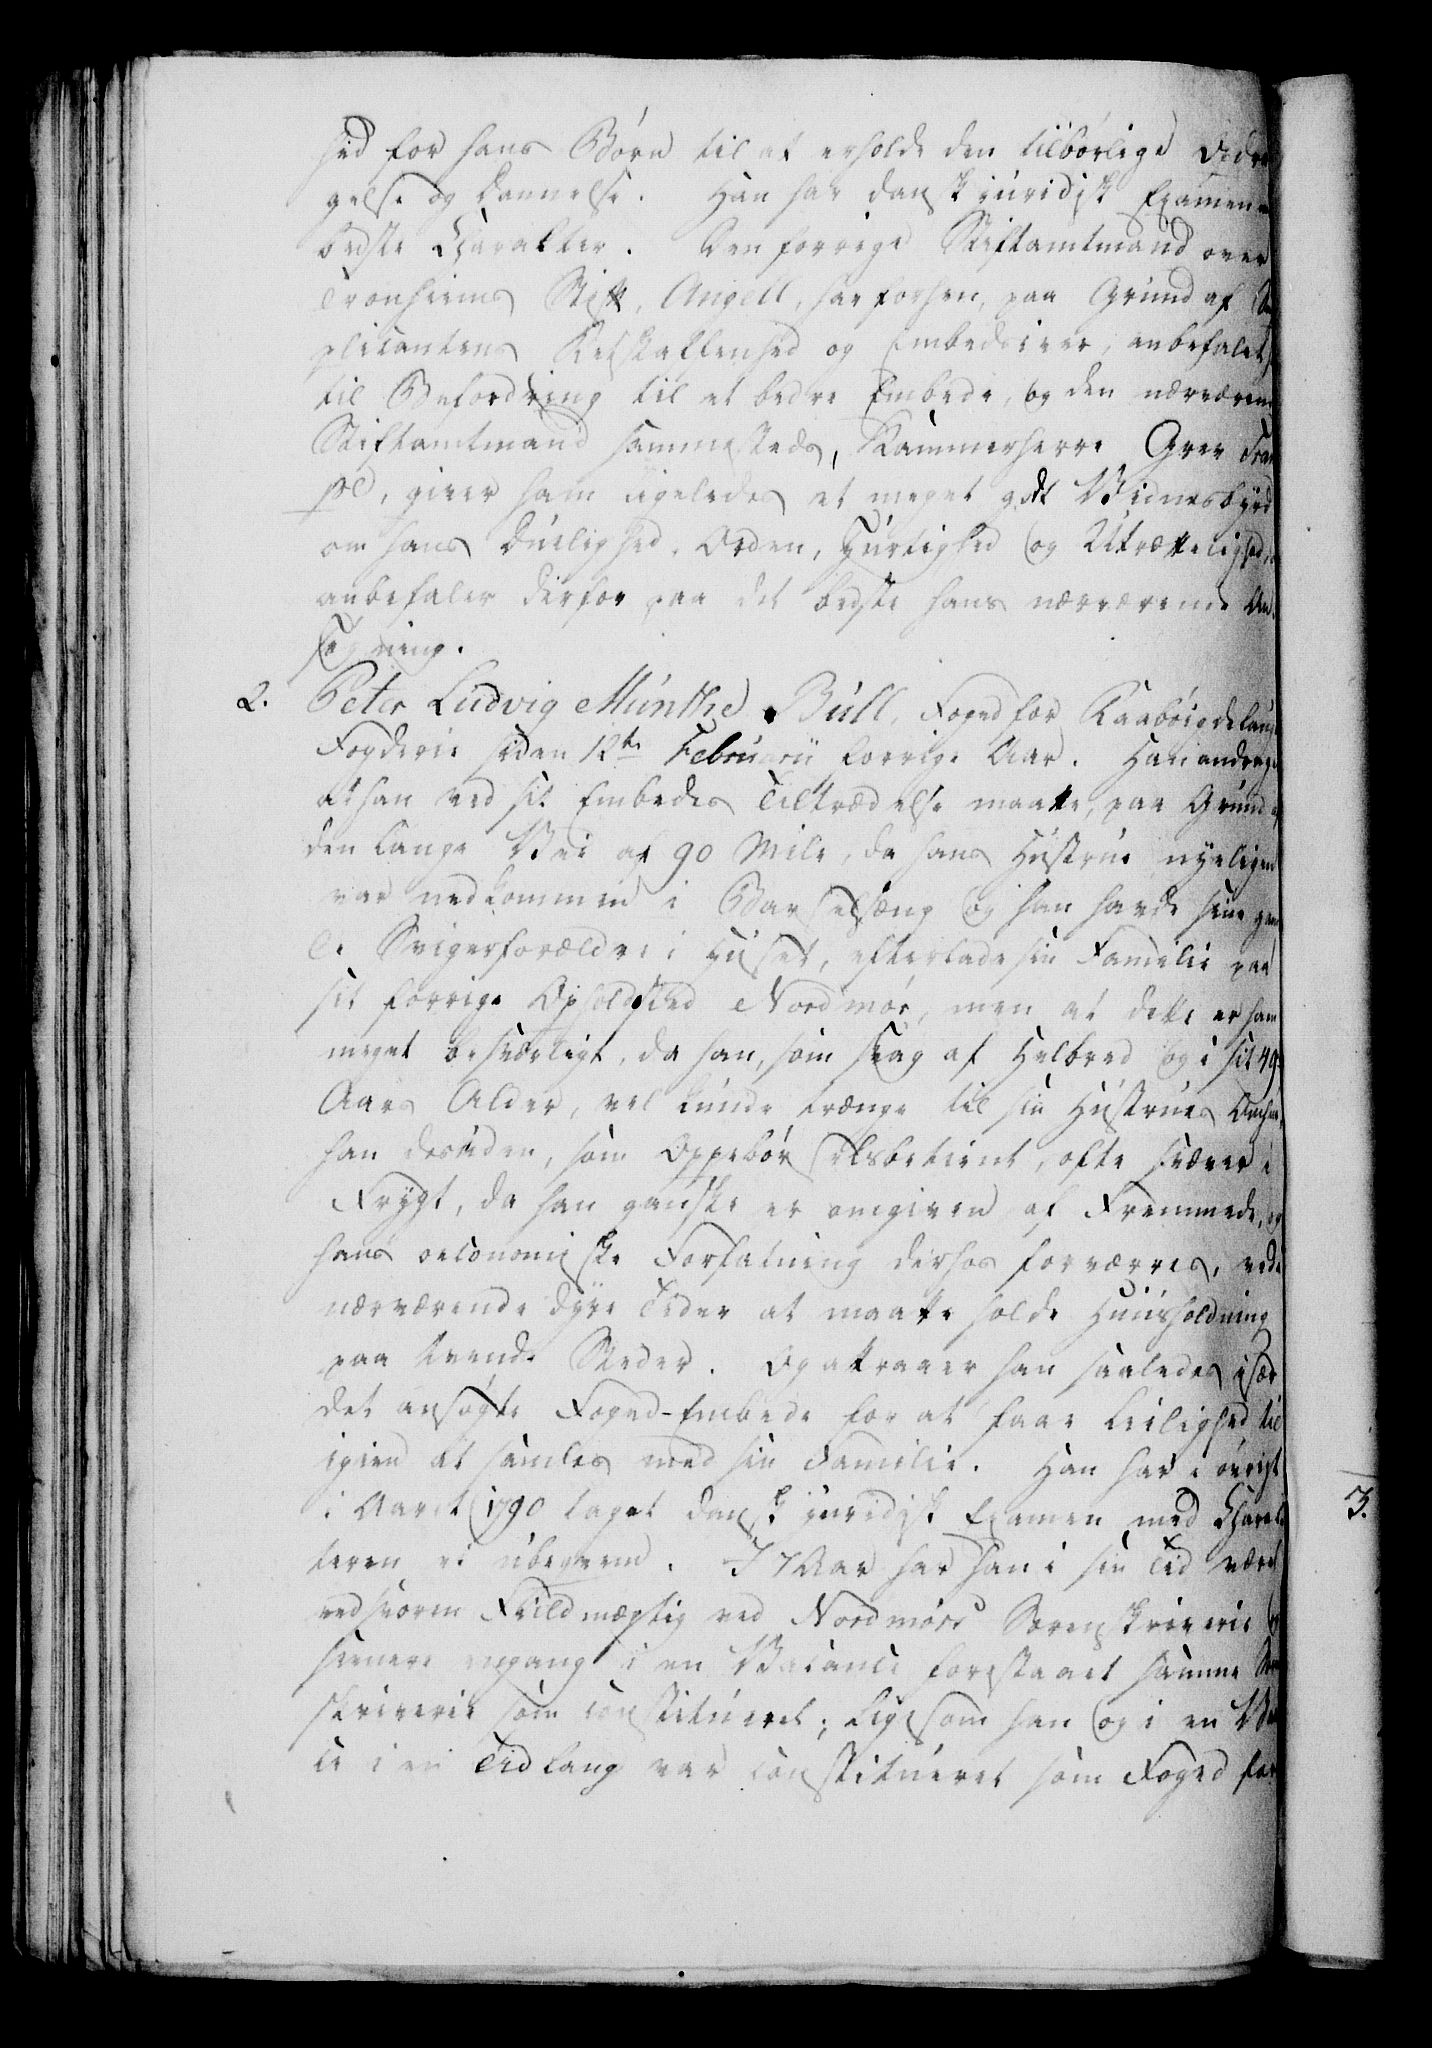 hed for hans Børn til at erholde den tilbørlige Undvi
gelse og Dannelse. Han har dansk juridisk Examen
bedste Charakter. Den forrige Stiftamtmand over
Tronhiems Stift, Angell, har forhen, paa Grund af Su
plicantens Retskaffenhed og Embedsiver, anbefalet
til Befordring til et bedre Embede, og den nærværen
Stiftamtmand sammesteds, Kammerherre Grev Tram
pe, giver ham ligeledes et meget godt Vidnesbyrd
om hans Duelighed, Orden, Hurtighed og Utrættelighed,
anbefaler derfor paa det bedste hans nærværende An
søgning.
2. Peter Ludvig Munthe Bull, Foged for Raabøigdelaugs
Fogderie siden 12te Februarii forrige Aar. Han andrager
at han ved sit Embedes Tiltrædelse maatte, paa Grund af
den lange Vei af 90 Mile, da hans Hustrue nyeligen
var nedkommen i Barselseng og han havde sine gam
le Svigerforældre i Huset, efterlade sin Familie paa
sit forrige Opholdsted Nordmør, men at dette er ham
meget besværligt, da han, som svag af Helbred og i sit 49de
Aars Alder, vel kunde trænge til sin Hustrues Omhue,
han desuden, som Oppebørselsbetient, ofte svæver i
Frygt, da han ganske er omgiven af Fremmede, og
hans oeconomiske Forfatning derhos forværres, ved i
nærværende dyre Tider at maatte holde Huusholdning
paa tvende Steder. Og attraaer han saaledes især
det ansøgte Foged-Embede for at faae Leilighed til
igien at samles med sin Familie. Han har i øvrigt
i Aaret 1790 taget dansk juridisk Examen med Charak
teren ei ubeqvem. I 7 Aar har han i sin Tid været
edsvoren Fuldmægtig ved Nordmørs Sorenskriverie og
senere engang i en Vacance forestaaet samme Soren
skriverie som constitueret; ligesom han og i en Vacan
ce i en Tidlang var constitueret som Foged for
3.